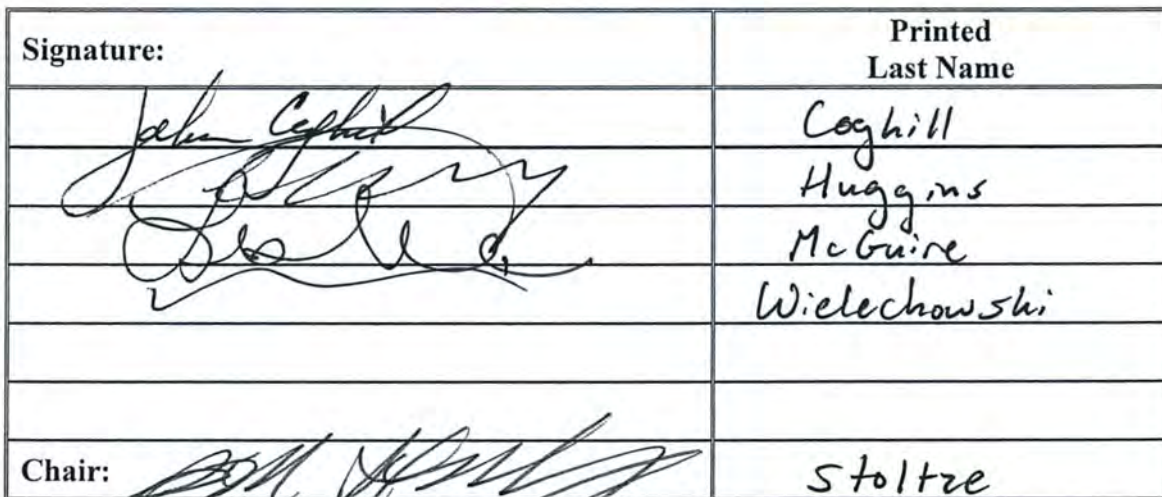 Signature:
Printed
Last Name
John Coghill Coghill
Huggins
McGuire
Wielechowski
Chair: Stoltze